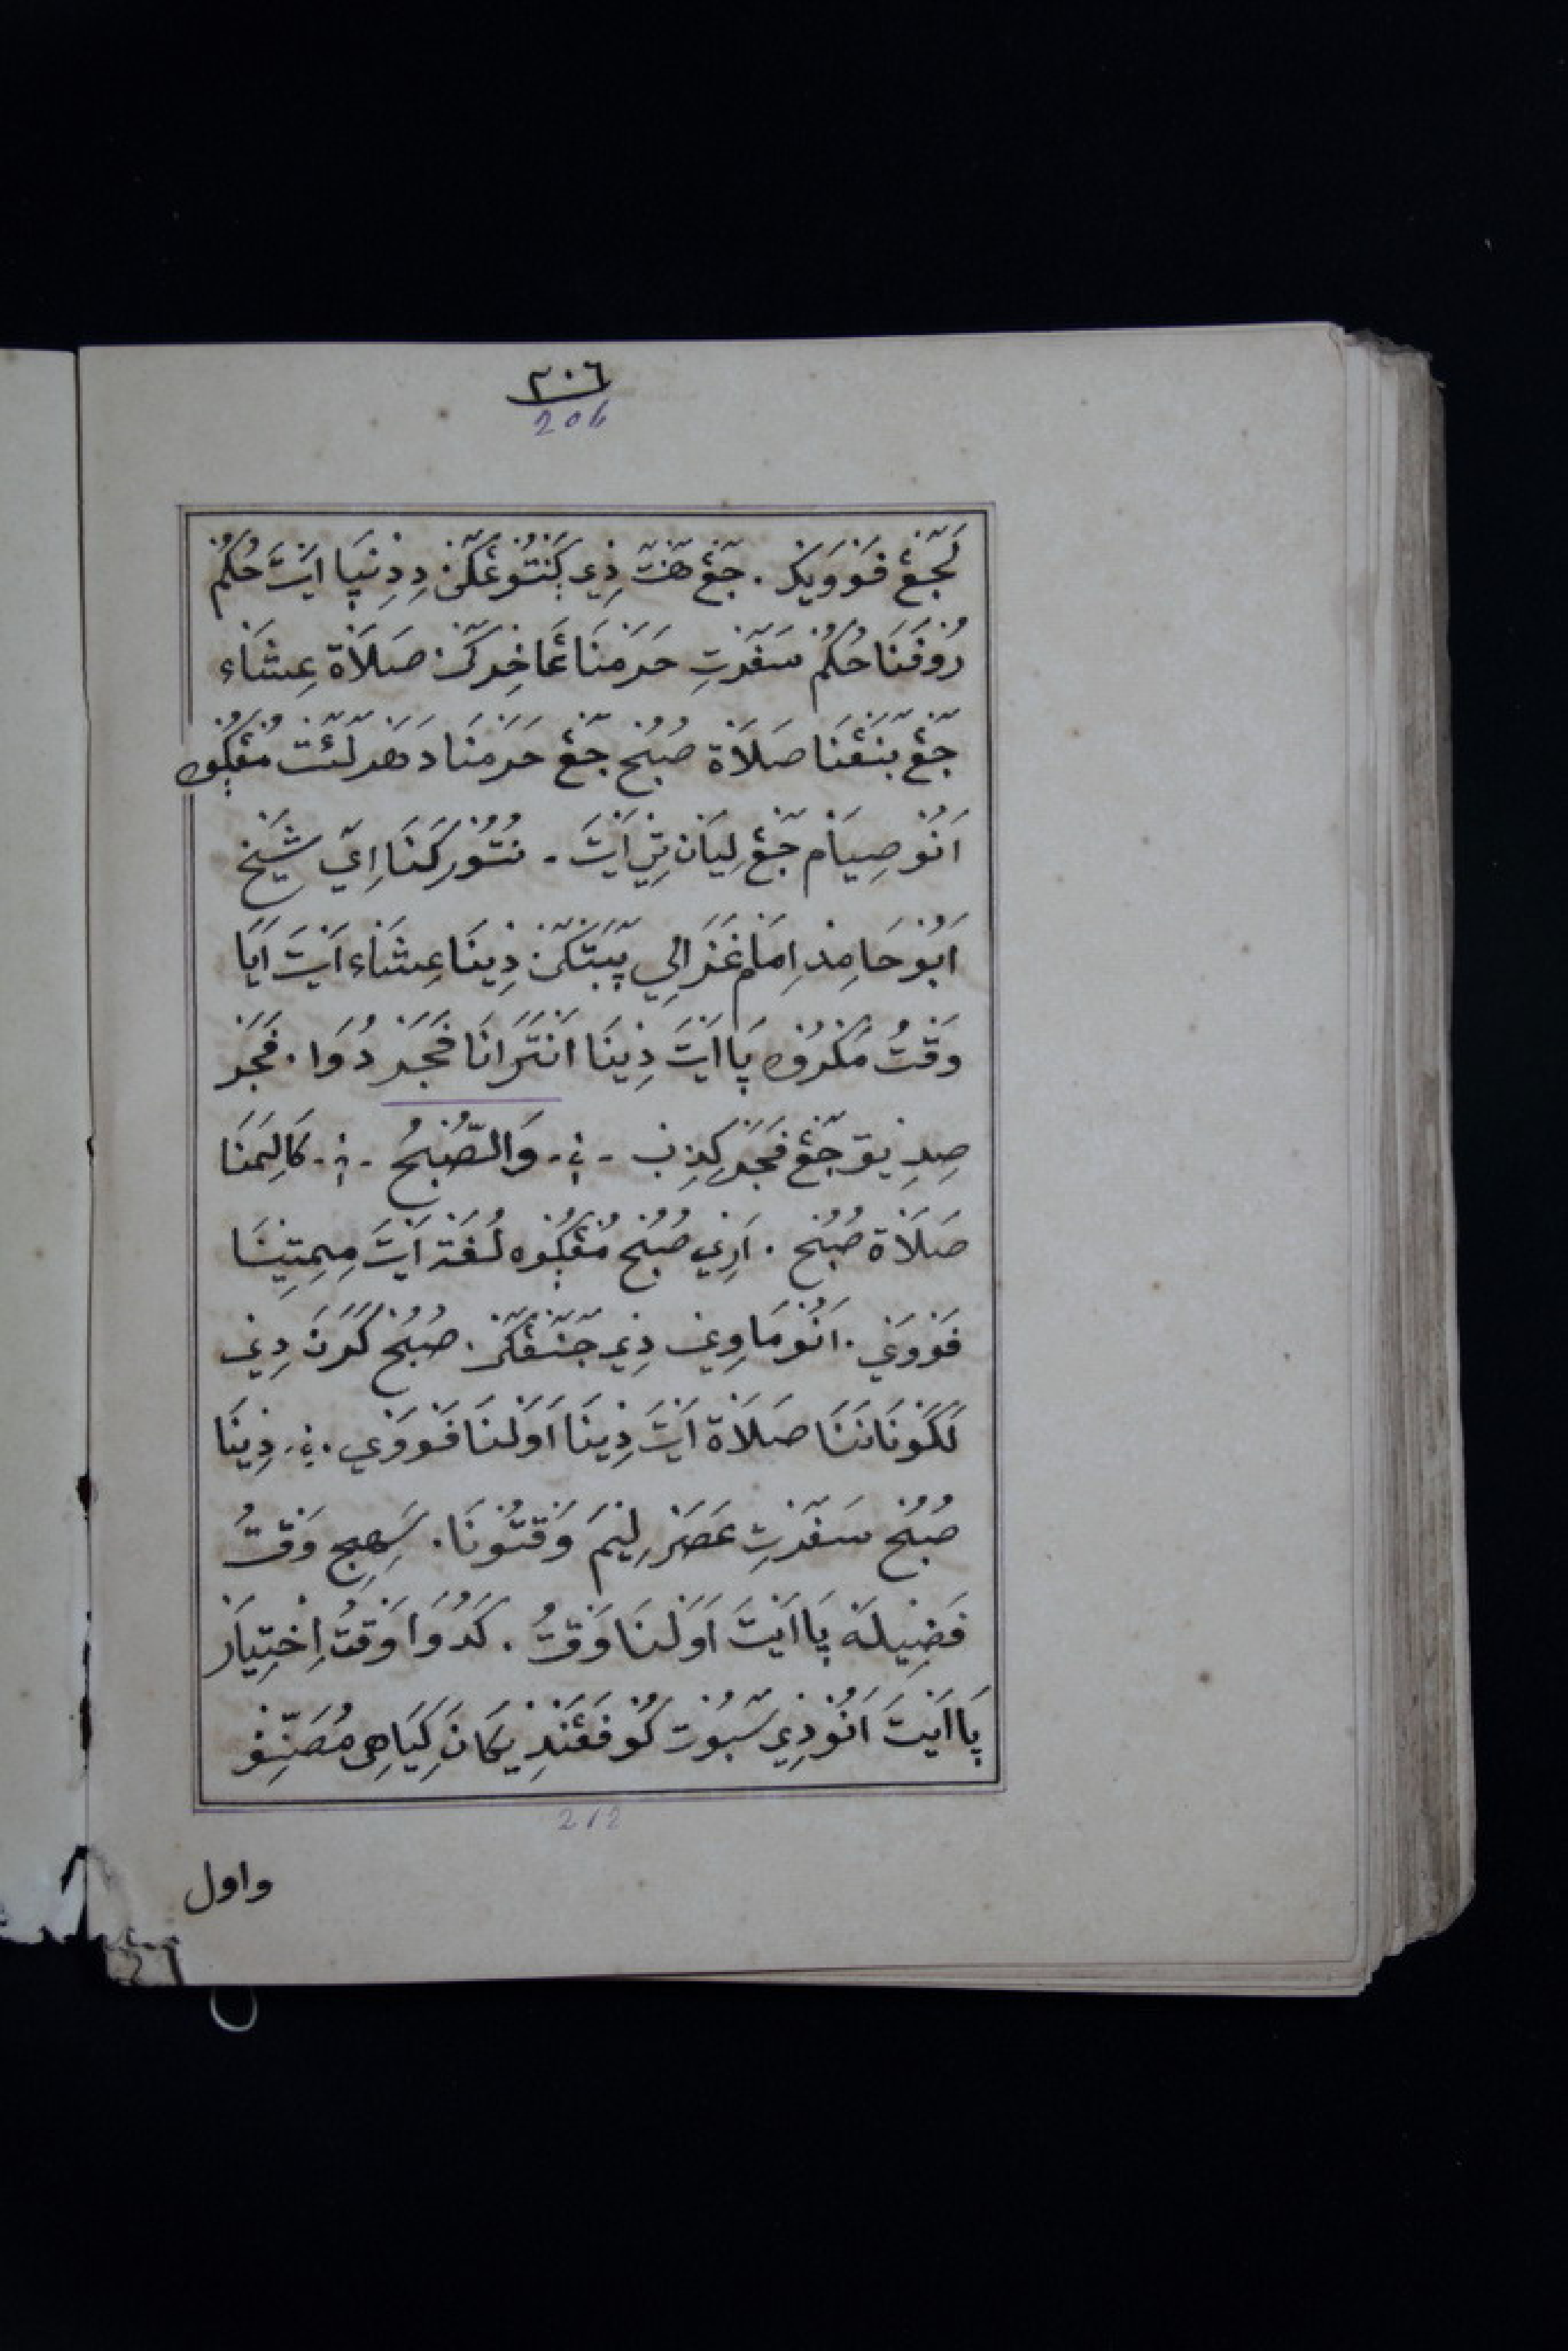 ٢٠٦
206
لَجّࣤڠْ فَوْوَيْكِ. جࣤڠْ هࣤنْتࣤ ذِيْ كَنْتُوْڠْكࣤنْ دِدِنِيْڽَا اَيْتَ حُكُمْ
رُوْفَنَا حُكُمْ سࣤفَرْتِ حَرَمْنَا غَاخِرْكَنْ صَلَاة عِشَاء
جࣤڠْ بَنࣤڠْنَا صَلَاة صُبُحْ جࣤڠْ حَرَمْنَا دَهَرْ لࣤئࣤتْ مُڠْڮُوه
اَنُوْ صِيَامْ جࣤڠْ لِيَانْ تِيْ اَيْتَ. نُتُوْرْكَنَا اِيْ شَيْخ
اَبُوْ حَامِدْ اِمَامْ غَزَالِي پࣤبࣤتْكࣤنْ ذِيْنَا عِشَاء اَيْتَ اَيَا
وَقْتُ مَكْرُوْه ڽَا اَيْتَ ذِيْنَا اَنْتَرَانَا فَجَرْ دُوَا. فَجَرْ
صِدِيْق جࣤڠْ فَجَرْ كِذِب - ؞ - وَالصُّبْحُ - ؞ - كَالِمَنَا
صَلَاة صُبُحْ. اَرِيْ صُبُحْ مُڠْڮُوْه لُغَة اَيْتَ مِمِتِيْنَا
فَوْوَيْ. اَنُوْ مَاوِيْ ذِيْ جࣤنࣤڠْكࣤنْ. صُبُحْ كَرَنَ دِيْ
لَكَوْنَانَنَا صَلَاة اَيْتَ ذِيْنَا اَوَلْنَا فَوْوَيْ. ؞. ذِيْنَا
صُبُحْ سࣤفَرْتِ عَصَرْ لِيْمَ وَقْتُوْنَا. سَهِجِ وَقْتُ
فَضِيْلَة ڽَا اَيْتَ اَوَلْنَا وَقْتُ. كَدُوَا وَقْتُ اِخْتِيَارْ
ڽَا اَيْتَ اَنُوْ ذِيْ سࣤبُوْت كُوْ فَڠَنْدِيْكَانَ كِيَاهِى مُصَنِّفْ
212
واول